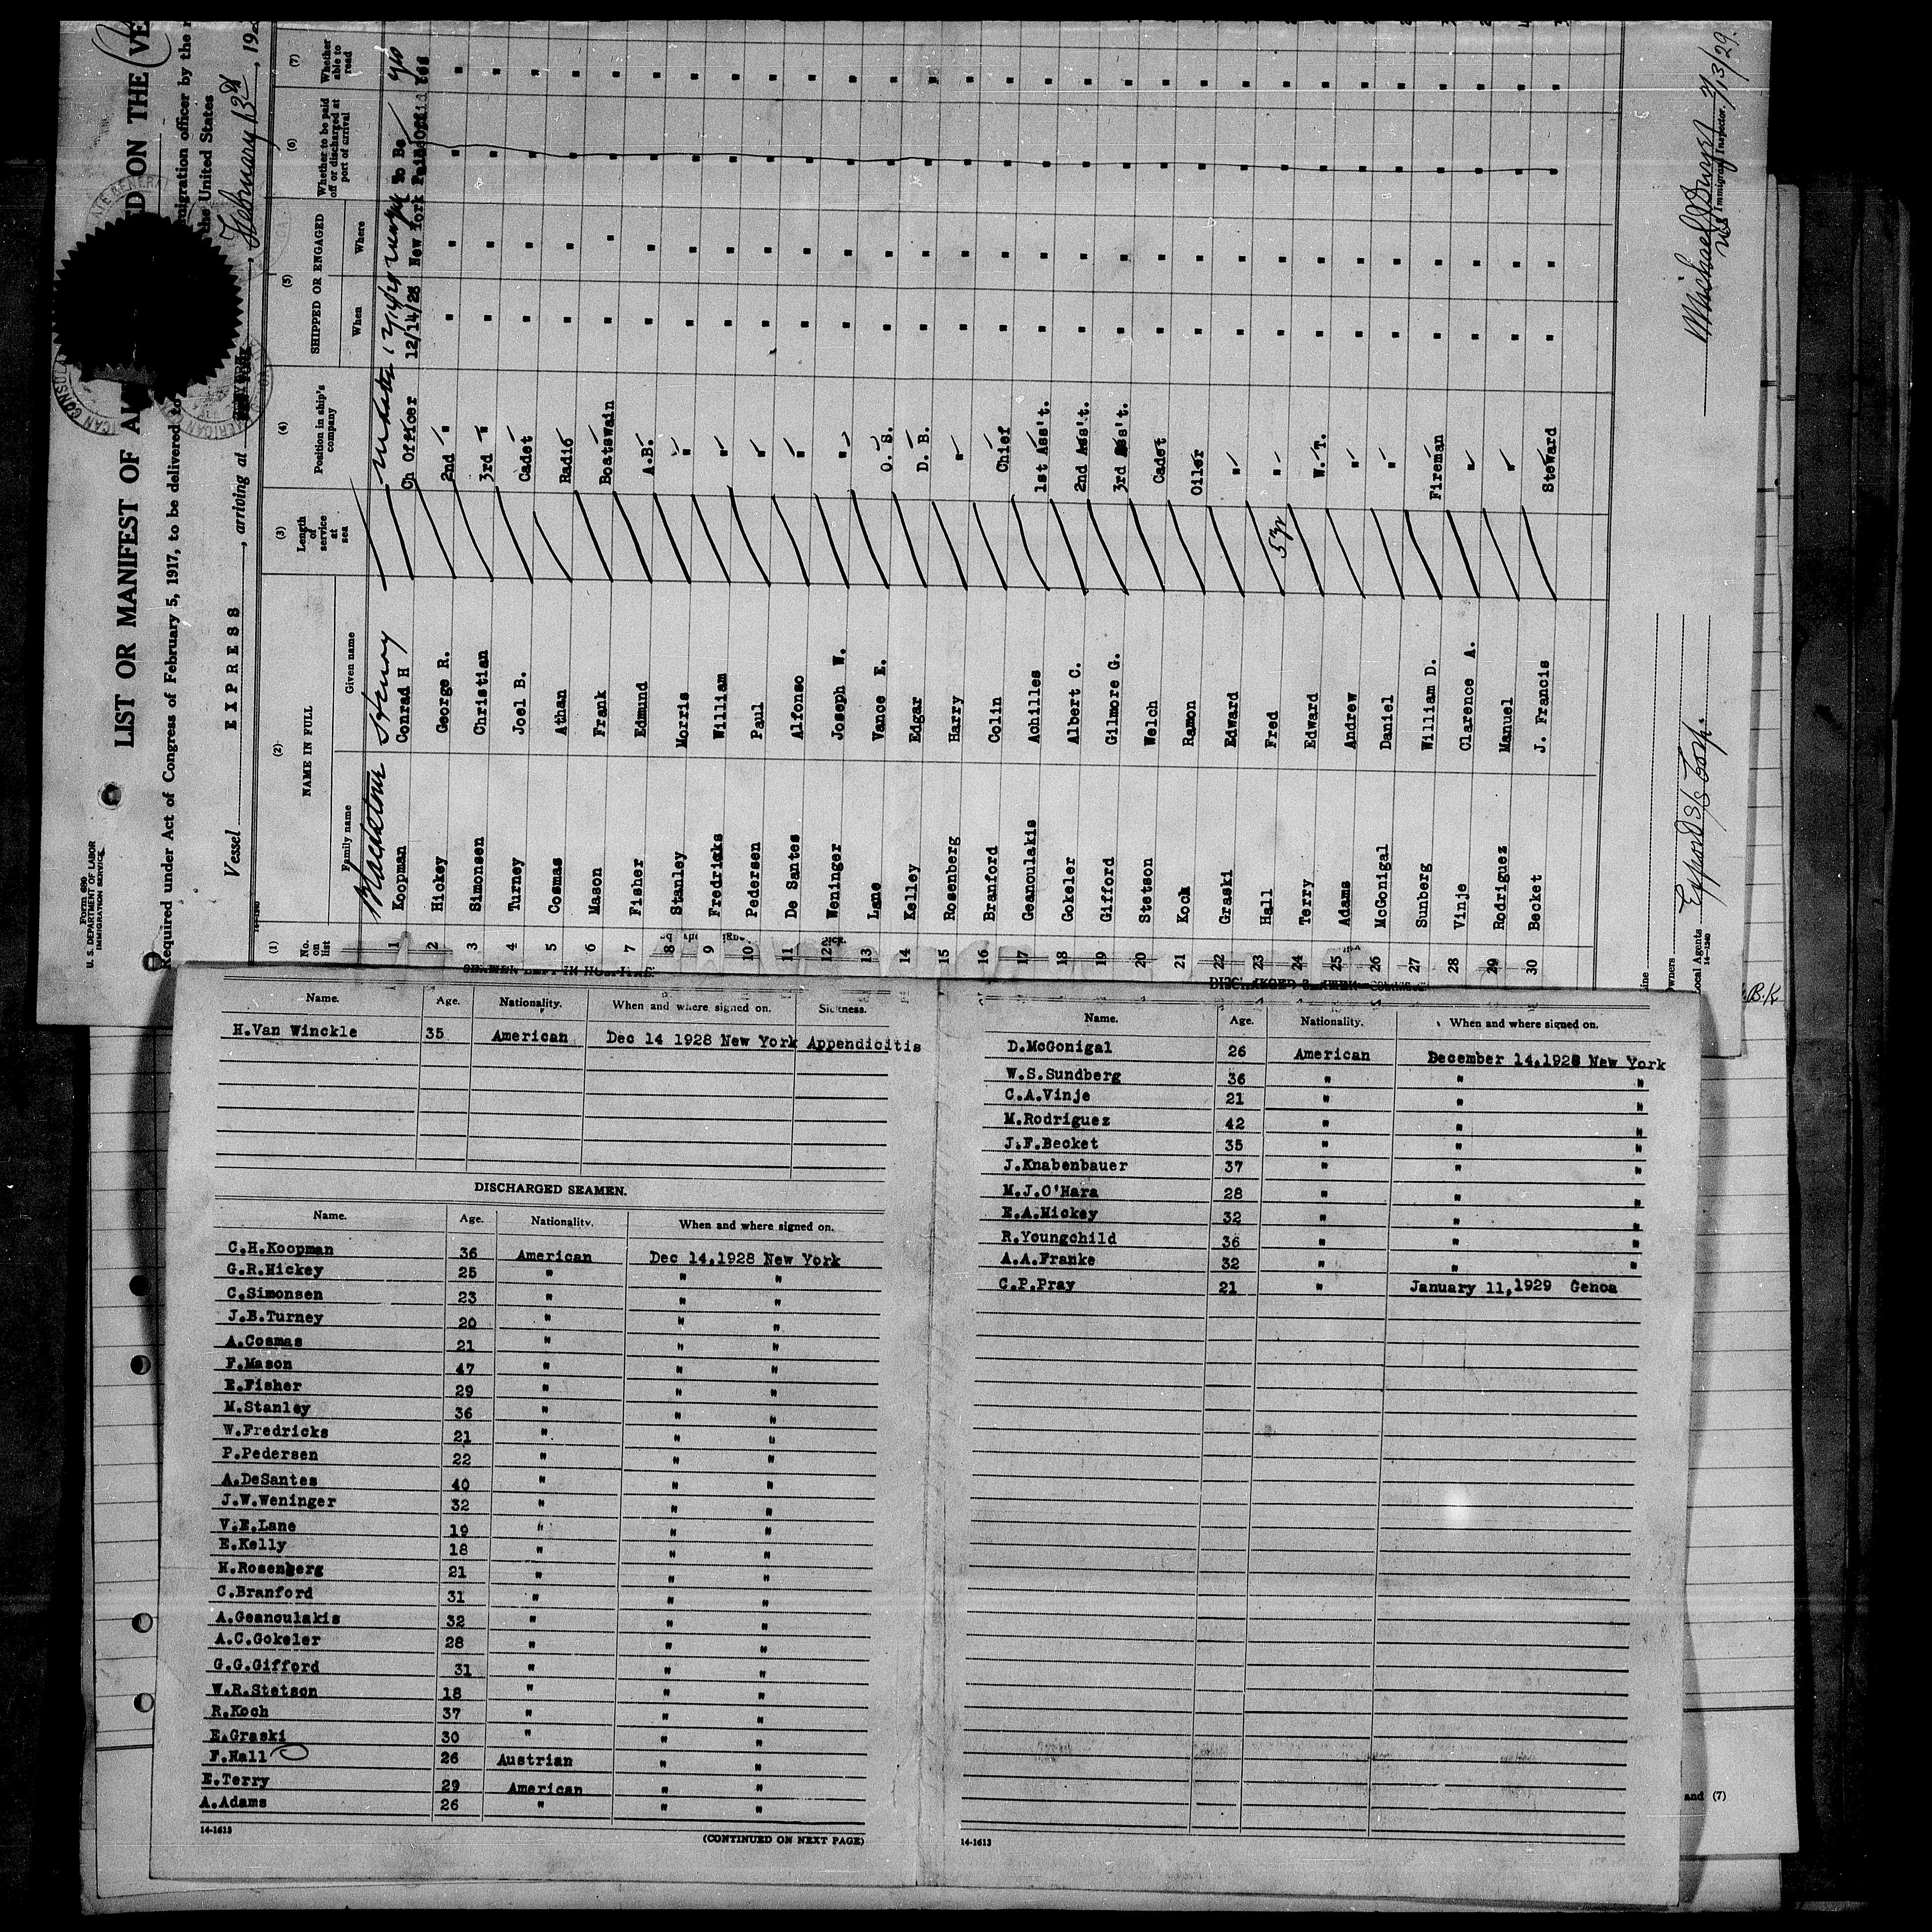 Form 689
U. S. DEPARTMENT OF LABOR
IMMIGRATION SERVICE
LIST OR MANIFEST OF ED ON THE VE
Required under Act of Congress of February 5, 1917, to be delivered to migration officer by the
the United States
Vessel EXPRESS, arriving at, February 13th, 192
(1) (2) (3) (4) (5) (6) (7)
No. on list NAME IN FULL Length of service at sea Position in ship's company SHIPPED OR ENGAGED Whether to be paid off or discharged at port of arrival Whether able to read
Family name Given name When Where
Henry Master
1 Koopman Conrad H Ch Officer 12/14/28 New York Yes
2 Hickey George R. 2nd " " " " "
3 Simonsen Christian 3rd " " " " "
4 Turney Joel B. Cadet " " " "
5 Cosmas Athan Radio " " " "
6 Mason Frank Boatswain " " " "
7 Fisher Edmund A.B. " " " "
8 Stanley Morris " " " " "
9 Fredricks William " " " " "
10 Pedersen Paul " " " " "
11 De Santes Alfonso " " " " "
12 Weninger Joseph W. " " " " "
13 Lane Vance E. O. S. " " " "
14 Kelley Edgar D. B. " " " "
15 Rosenberg Harry " " " " "
16 Branford Colin Chief " " " "
17 Geanoulakis Achilles 1st Ass't. " " " "
18 Gokeler Albert C. 2nd Ass't. " " " "
19 Gifford Gilmore G. 3rd Ass't. " " " "
20 Stetson Welch Cadet " " " "
21 Kock Ramon Oiler " " " "
22 Graski Edward " " " " "
23 Hall Fred 5 yr " " " " "
24 Terry Edward W. T. " " " "
25 Adams Andrew " " " " "
26 McGonigal Daniel " " " " "
27 Sunberg William D. Fireman " " " "
28 Vinje Clarence A. " " " " "
29 Rodriguez Manuel " " " " "
30 Becket J. Francis Steward " " " "
Immigrant Inspector. 2/13/29.
Owners
Local Agents Export S/S Corp.
14-1240
SEAMEN LEFT IN HOSPITAL.
Name. Age. Nationality. When and where signed on. Sickness.
H.Van Winckle 35 American Dec 14 1928 New York Appendicitis
DISCHARGED SEAMEN.
Name. Age. Nationality. When and where signed on.
C.H.Koopman 36 American Dec 14,1928 New York
G.R.Hickey 25 " " "
C.Simonsen 23 " " "
J.B.Turney 20 " " "
A.Cosmas 21 " " "
F.Mason 47 " " "
E.Fisher 29 " " "
M.Stanley 36 " " "
W.Fredricks 21 " " "
P.Pedersen 22 " " "
A.DeSantes 40 " " "
J.W.Weninger 32 " " "
V.E.Lane 19 " " "
E.Kelly 18 " " "
H.Rosenberg 21 " " "
C.Branford 31 " " "
A.Geanoulakis 32 " " "
A.C.Gokeler 28 " " "
G.G.Gifford 31 " " "
W.R.Stetson 18 " " "
R.Koch 37 " " "
E.Graski 30 " " "
F.Hall 26 Austrian " "
E.Terry 29 American " "
A.Adams 26 " " "
14-1613
(CONTINUED ON NEXT PAGE)
Name. Age. Nationality. When and where signed on.
D.McGonigal 26 American December 14,1928 New York
W.S.Sundberg 36 " " "
C.A.Vinje 21 " " "
M.Rodriguez 42 " " "
J.F.Becket 35 " " "
J.Knabenbauer 37 " " "
M.J.O'Hara 28 " " "
E.A.Hickey 32 " " "
R.Youngchild 36 " " "
A.A.Franke 32 " " "
C.P.Pray 21 " January 11,1929 Genoa
14-1613
and (7)